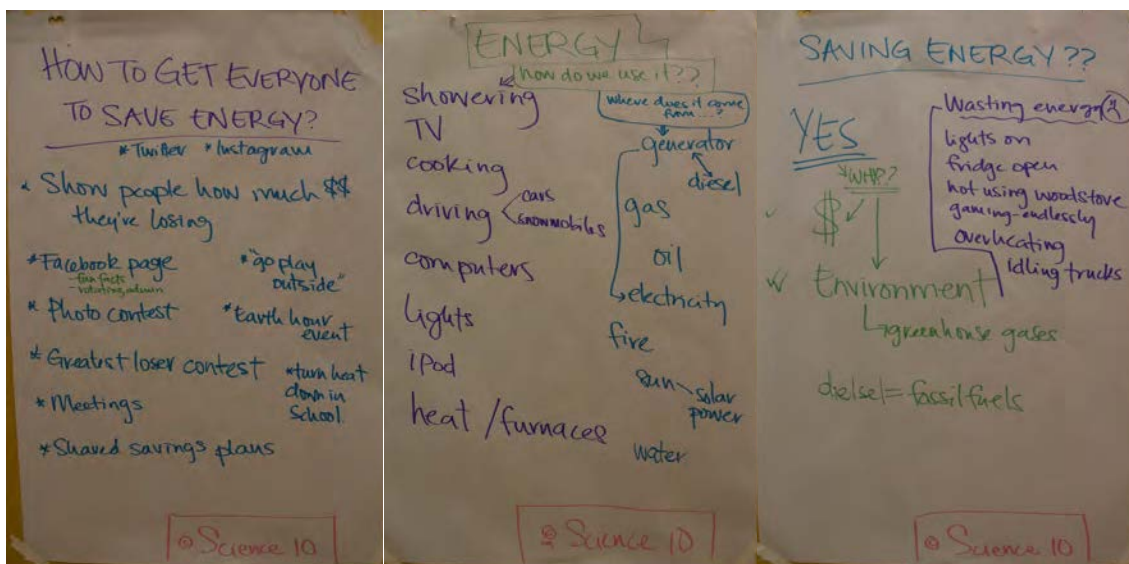 HOW TO GET EVERYONE
TO SAVE ENERGY?
* Twitter * Instagram
* Show people how much $$
they're losing
* Facebook page
- fun facts
- rotating admin
* "go play
outside"
* Photo contest
* Earth hour
event
* Greatest loser contest
* turn heat
down in
school
* Meetings
* Shared savings plans
Science 10
ENERGY
how do we use it??
showering
TV
cooking
driving
cars
snowmobiles
computers
lights
iPod
heat / furnaces
where does it come
from...?
generator
diesel
gas
oil
electricity
fire
sun
solar
power
water
Science 10
SAVING ENERGY??
YES
* WHY?
$
Environment
greenhouse gases
dielsel = fossil fuels
Wasting energy
lights on
fridge open
not using woodstove
gaming - endlessly
overheating
idling trucks
Science 10